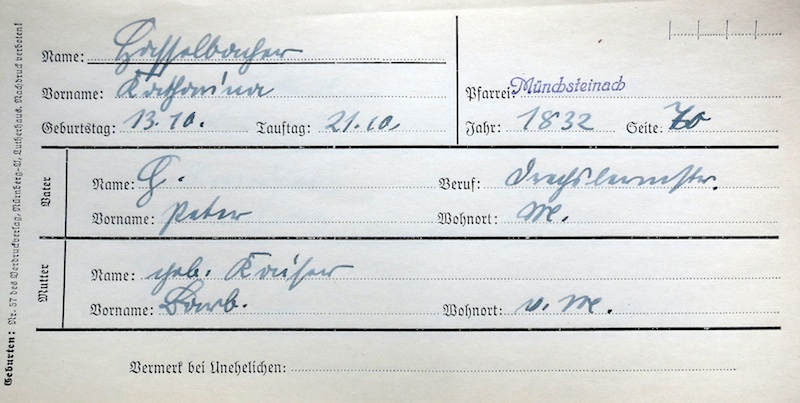 Name: Hasselbacher
Vorname: Katharina
Pfarrei: Münchsteinach
Geburtstag: 13.10. Tauftag: 21.10. Jahr: 1832 Seite: 70
Vater
Name: H. Beruf: Drechslermstr.
Vorname: Peter Wohnort: M.
Mutter
Name: geb. Kaiser
Vorname: Barb. Wohnort: v. M.
Vermerk bei Unehelichen:
Geburten: Nr. 57 des Vordruckverlag, Nürnberg-A, Lutherhaus. Nachdruck verboten!